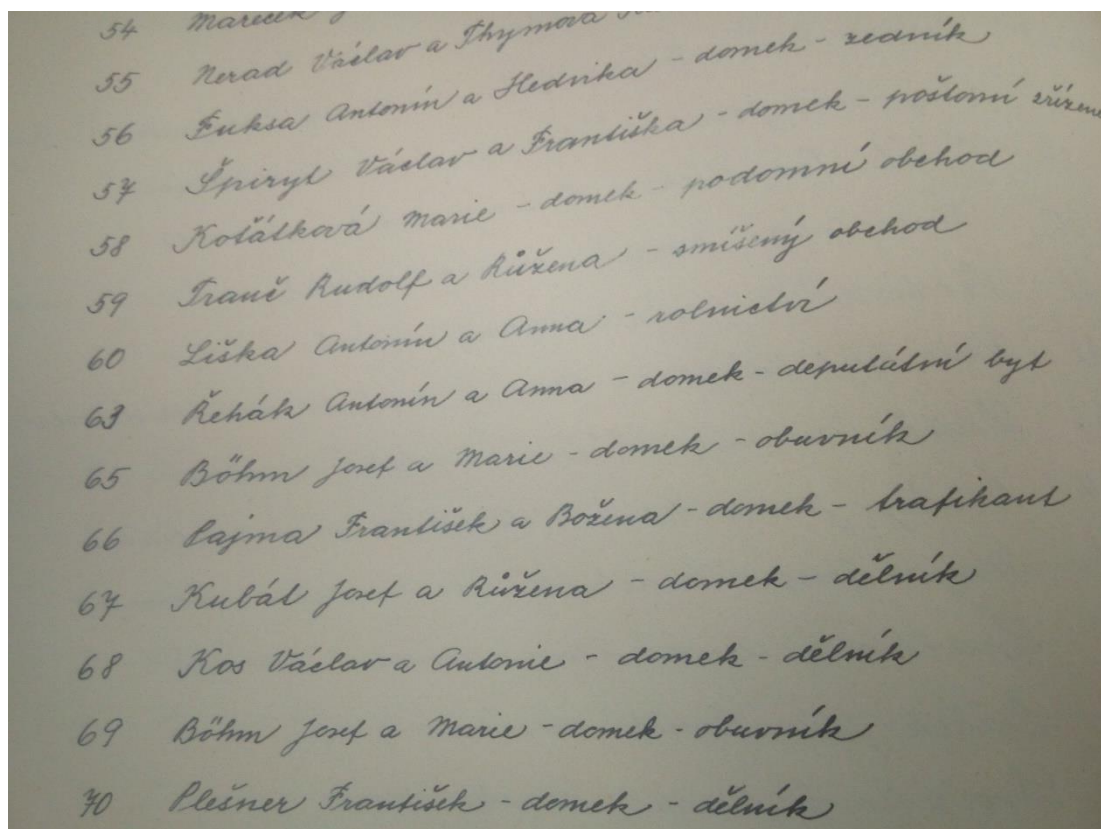 54 Mareček
55 Nerad Václav a Thymová
56 Fuksa Antonín a Hedvika - domek - zedník
57 Špiryt Václav a Františka - domek - poštovní zřízene
58 Koťátková Marie - domek - podomní obchod
59 Tranč Rudolf a Růžena - smíšený obchod
60 Liška Antonín a Anna - rolnictví
63 Řehák Antonín a Anna - domek - deputátní byt
65 Böhm Josef a Marie - domek - obuvník
66 Pajma František a Božena - domek - trafikant
67 Kubát Josef a Růžena - domek - dělník
68 Kos Václav a Antonie - domek - dělník
69 Böhm Josef a Marie - domek - obuvník
70 Plešner František - domek - dělník